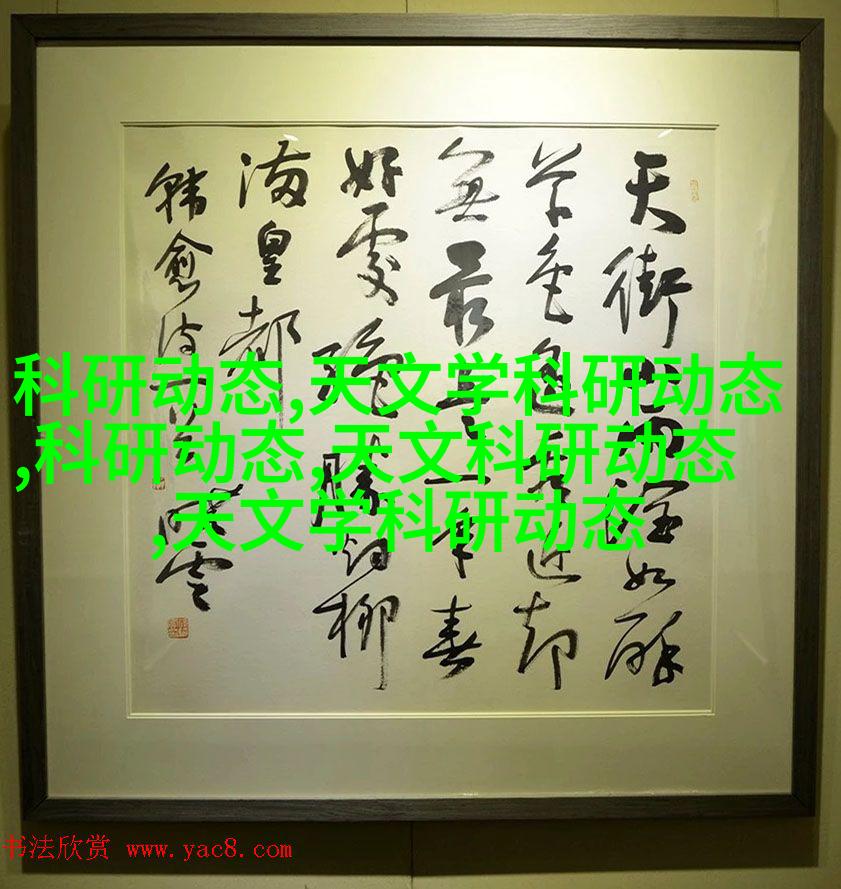 天街小雨潤如酥
草色遥看近却
無最是一年春
好處絕勝烟柳
滿皇都
韓愈詩
科研动态,天文学科研动态
,科研动态,天文科研动态
,天文学科研动态
书法欣赏 www.yac8.com